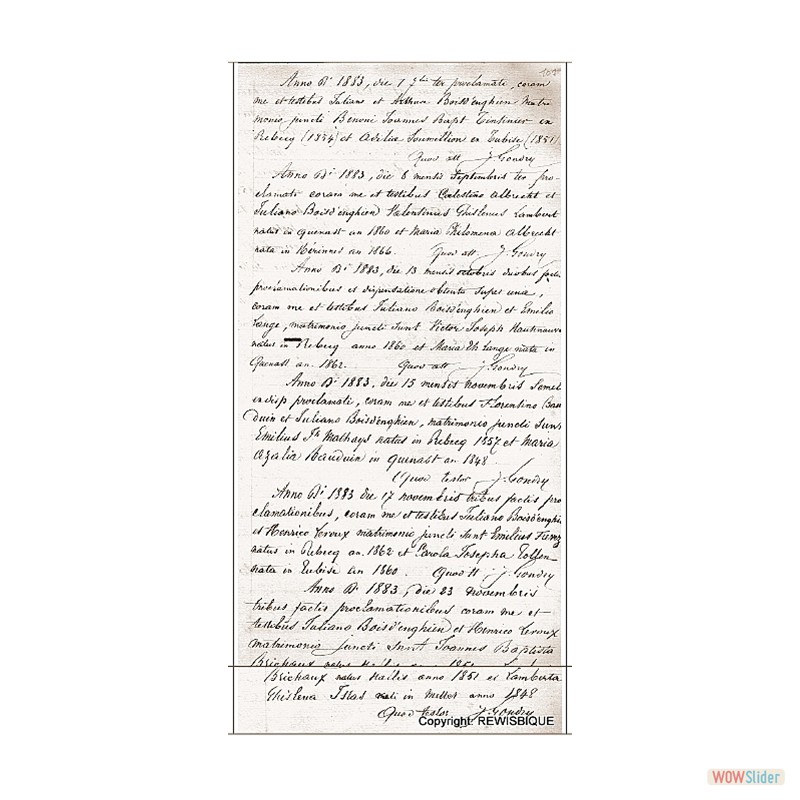 Anno Di 1883, die 1 7bris ter proclamati, coram
me et testibus Juliano et Arthur Boisd'enghien matri
monio juncti Benoni Joannes Bapt Tinsinier ex
Rebecq (1854) et Adelia Soumillion ex Tubise (1851)
Quod att J. Gondry
Anno Di 1883, die 6 mensis Septembris ter pro-
clamati coram me et testibus Celestino Albrecht et
Juliano Boisd'enghien Valentinus Ghislenus Lambert
natus in Quenast an 1860 et Maria Philomena Albrecht
nata in Hérinnes an 1866. Quod att J. Gondry
Anno Di 1883, die 13 mensis octobris duobus factis
proclamationibus et dispensatione obtenta super una,
coram me et testibus Juliano Boisd'enghien et Emilio
Lange, matrimonio juncti sunt Victor Joseph
natus in Rebecq anno 1860 et Maria Th. Lange nata in
Quenast an. 1862. Quod att J. Gondry
Anno Di 1883, die 15 mensis novembris Semel
ex disp proclamati, coram me et testibus Florentino Bau
duin et Juliano Boisd'enghien, matrimonio juncti sunt
Emilius Jh Malhays natus in Rebecq 1857 et Maria
Azalia Bauduin in Quenast an. 1848
Quod testor J. Gondry
Anno Di 1883 die 17 novembris tribus factis pro
clamationibus, coram me et testibus Juliano Boisd'enghien
et Henrico Leroux matrimonio juncti sunt Emilius
natus in Rebecq an. 1862 et Carola Josepha
nata in Tubise an 1860. Quod tt J. Gondry
Anno Di 1883, die 23 novembris
tribus factis proclamationibus coram me et
testibus Juliano Boisd'enghien et Henrico Leroux
matrimonio juncti sunt Joannes Baptista
Brichaux natus
Brichaux natus Hallis anno 1851 et Lamberta
Ghislena Islas nati in Mellet anno 1848
Quod testor J. Gondry
Copyright: REWISBIQUE
WOWSlider